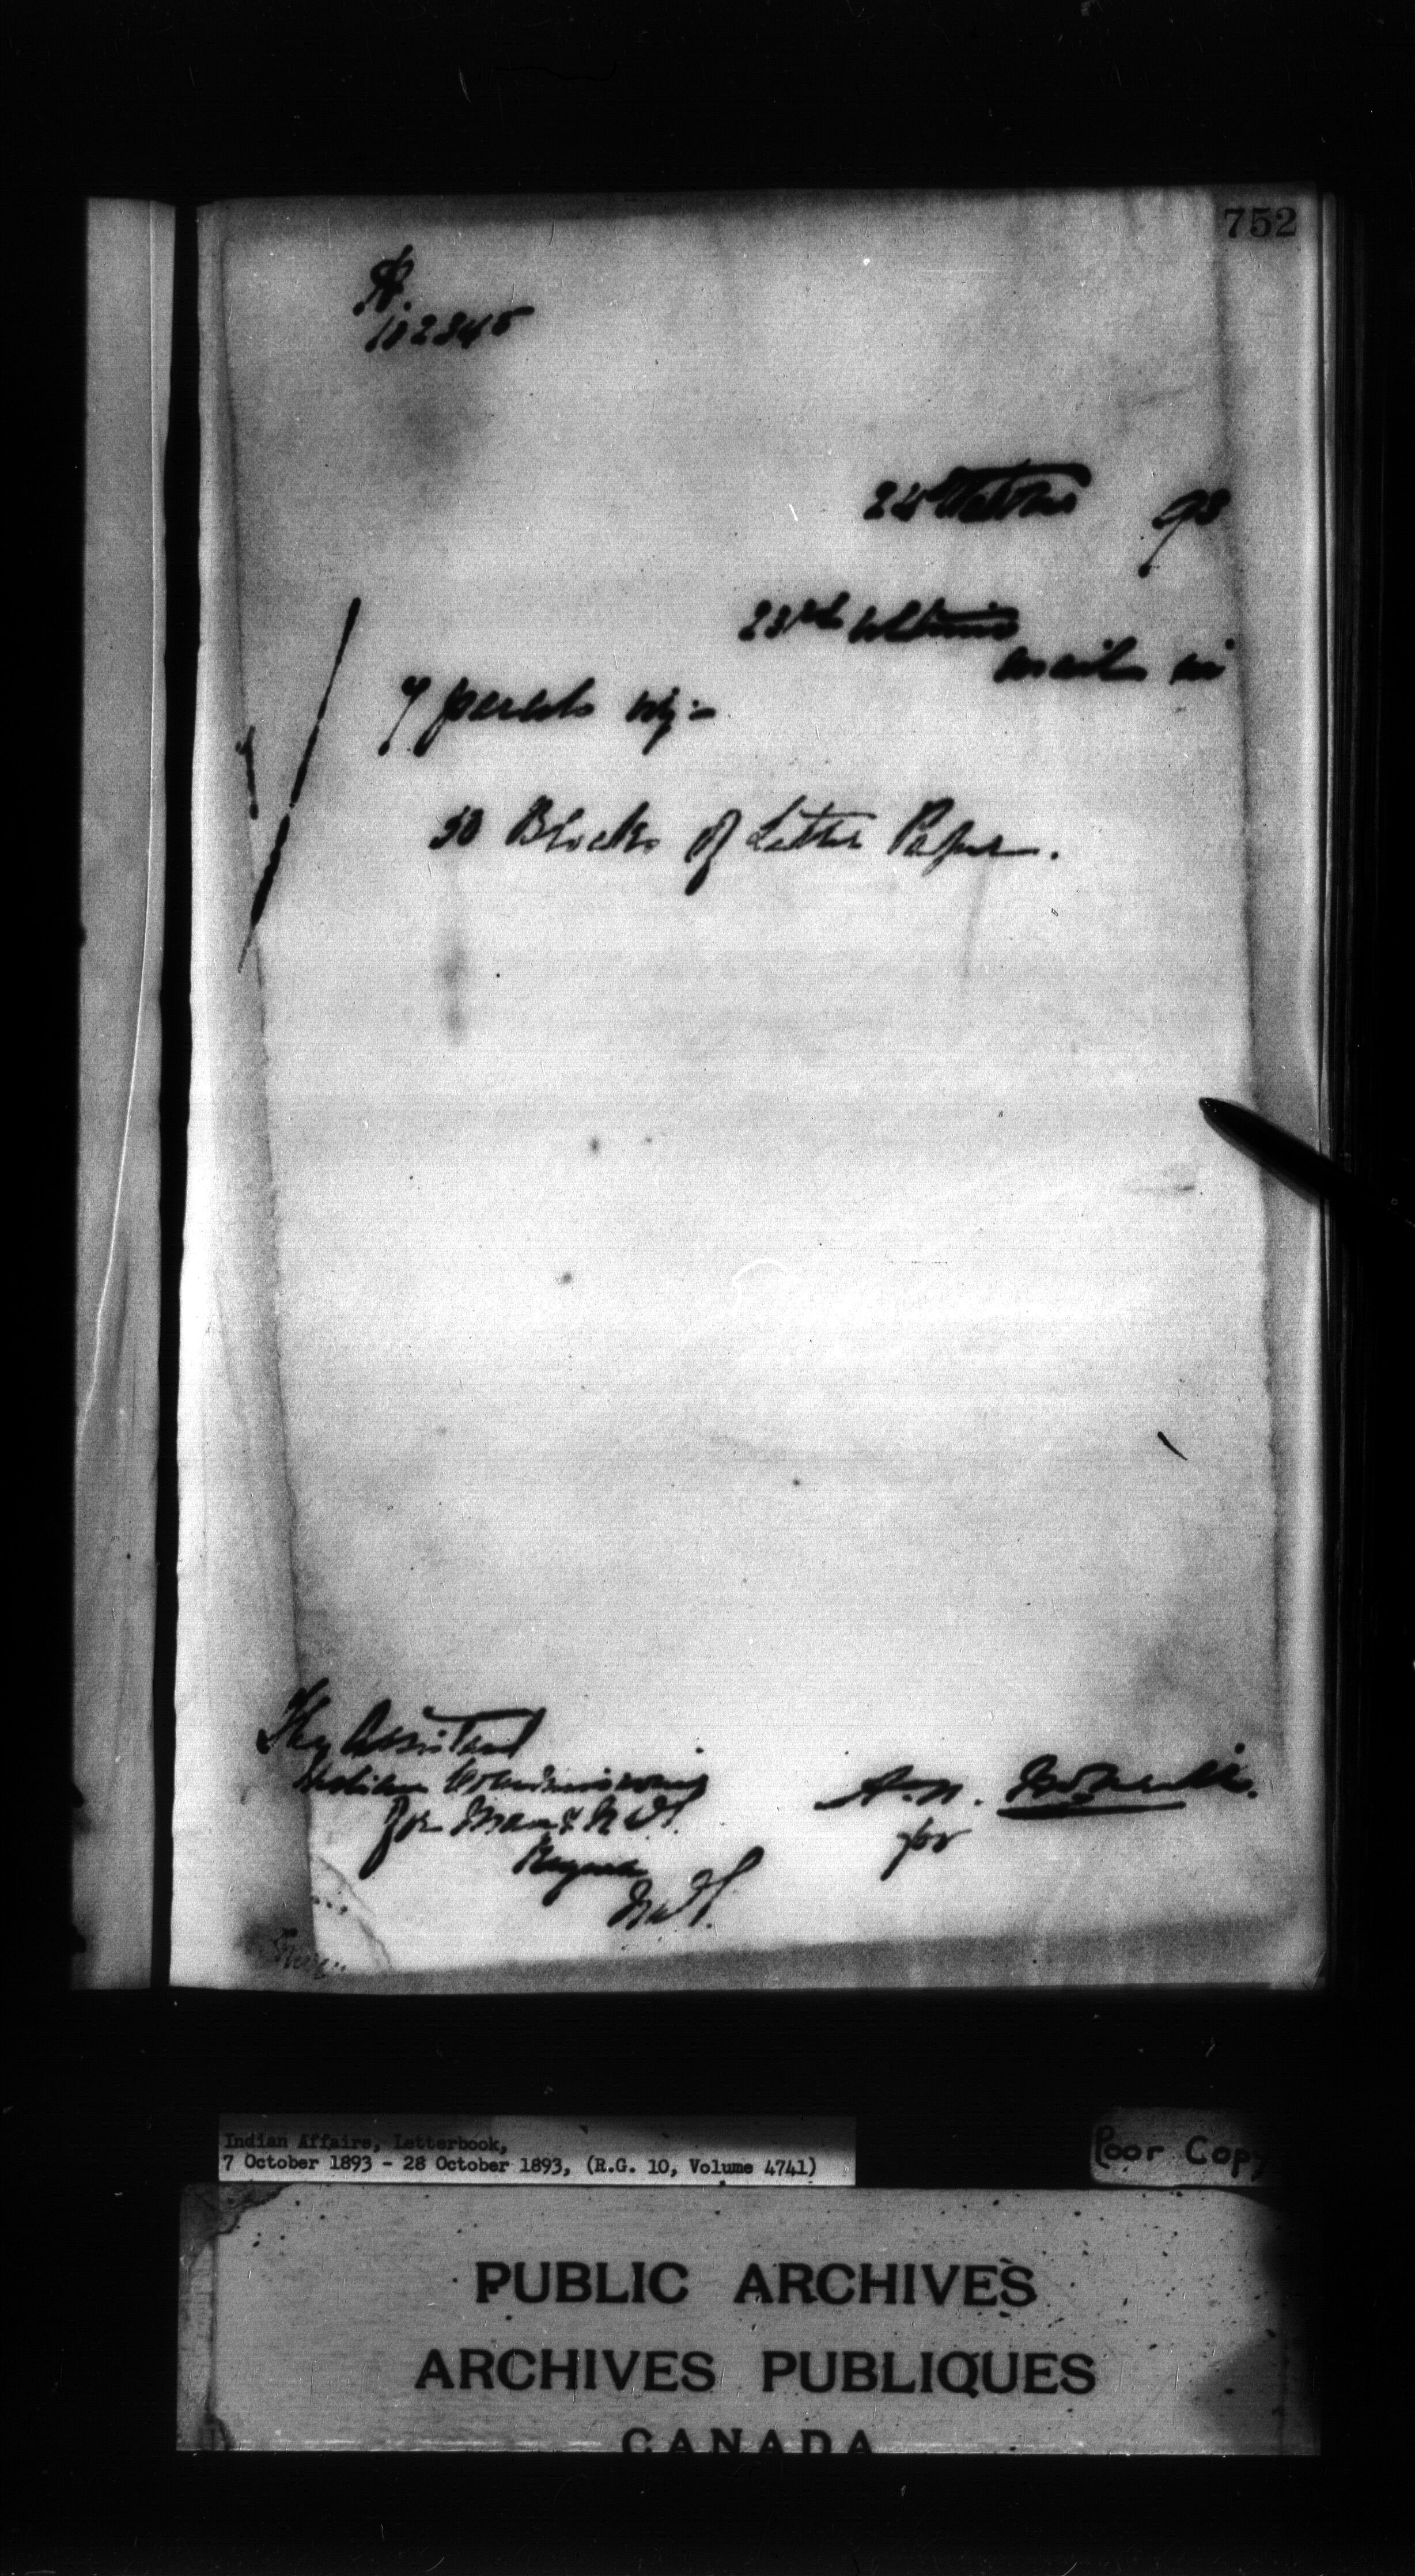 752
102345
24 October 93
23rd Ultimo
mail in
7 parcels viz:-
50 Blocks of Letter Paper.
The Assistant
Indian Commissioner
for Man & N.W.T.
Regina
N.W.T.
A.N. McNeill.
for
Indian Affairs, Letterbook,
7 October 1893 - 28 October 1893, (R.G. 10, Volume 4741)
Poor Copy
PUBLIC ARCHIVES
ARCHIVES PUBLIQUES
CANADA